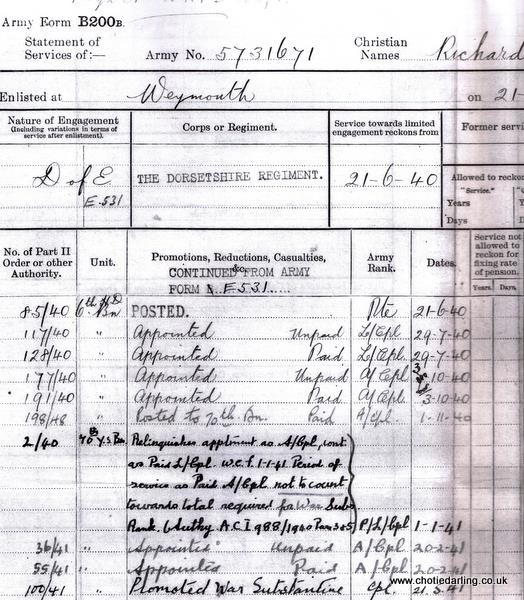 Army Form B200B.
Statement of Services of:— Army No. 5731671 Christian Names Richard
Enlisted at Weymouth on 21-
Nature of Engagement (Including variations in terms of service after enlistment). Corps or Regiment. Service towards limited engagement reckons from Former servi
D of E E.531 THE DORSETSHIRE REGIMENT. 21-6-40 Allowed to reckon
"Service." "G
Years Y
Days D
No. of Part II Order or other Authority. Unit. Promotions, Reductions, Casualties, &c. Army Rank. Dates. Service not allowed to reckon for fixing rate of pension.
CONTINUED FROM ARMY
FORM E531..... Years. Days.
85/40 6th H.D Bn POSTED. Pte 21-6-40
117/40 " Appointed Unpaid L/Cpl. 29-7-40
128/40 " Appointed Paid L/Cpl. 29-7-40
177/40 " Appointed Unpaid A/Cpl. 3-10-40
191/40 " Appointed Paid A/Cpl. 3-10-40
198/48 " Posted to 70th Bn. Paid A/Cpl. 1-11-40
2/40 70th Y.S. Bn. Relinquishes apptment as A/Cpl, cont
as Paid L/Cpl. w.e.f. 1-1-41 Period of
service as Paid A/Cpl not to count
towards total required for War Subs
Rank. (Authy. A.C.I 988/1940 Para 3&5) P/L/Cpl 1-1-41
36/41 " Appointed Unpaid A/Cpl 20-2-41
55/41 " Appointed Paid A/Cpl. 20-2-41
100/41 " Promoted War Substantive Cpl. 21-5-41
www.chotiedarling.co.uk